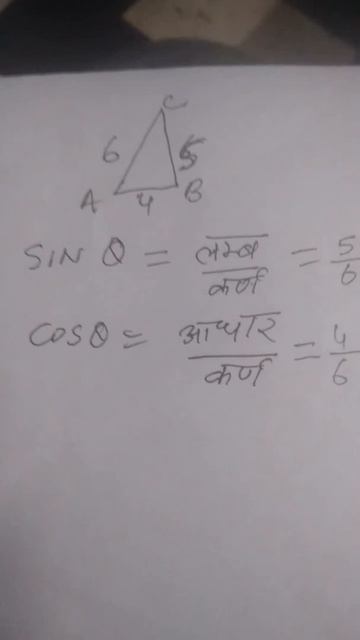 C
6 5
A 4 B
SIN θ = लम्ब / कर्ण = 5/6
COSθ = आधार / कर्ण = 4/6